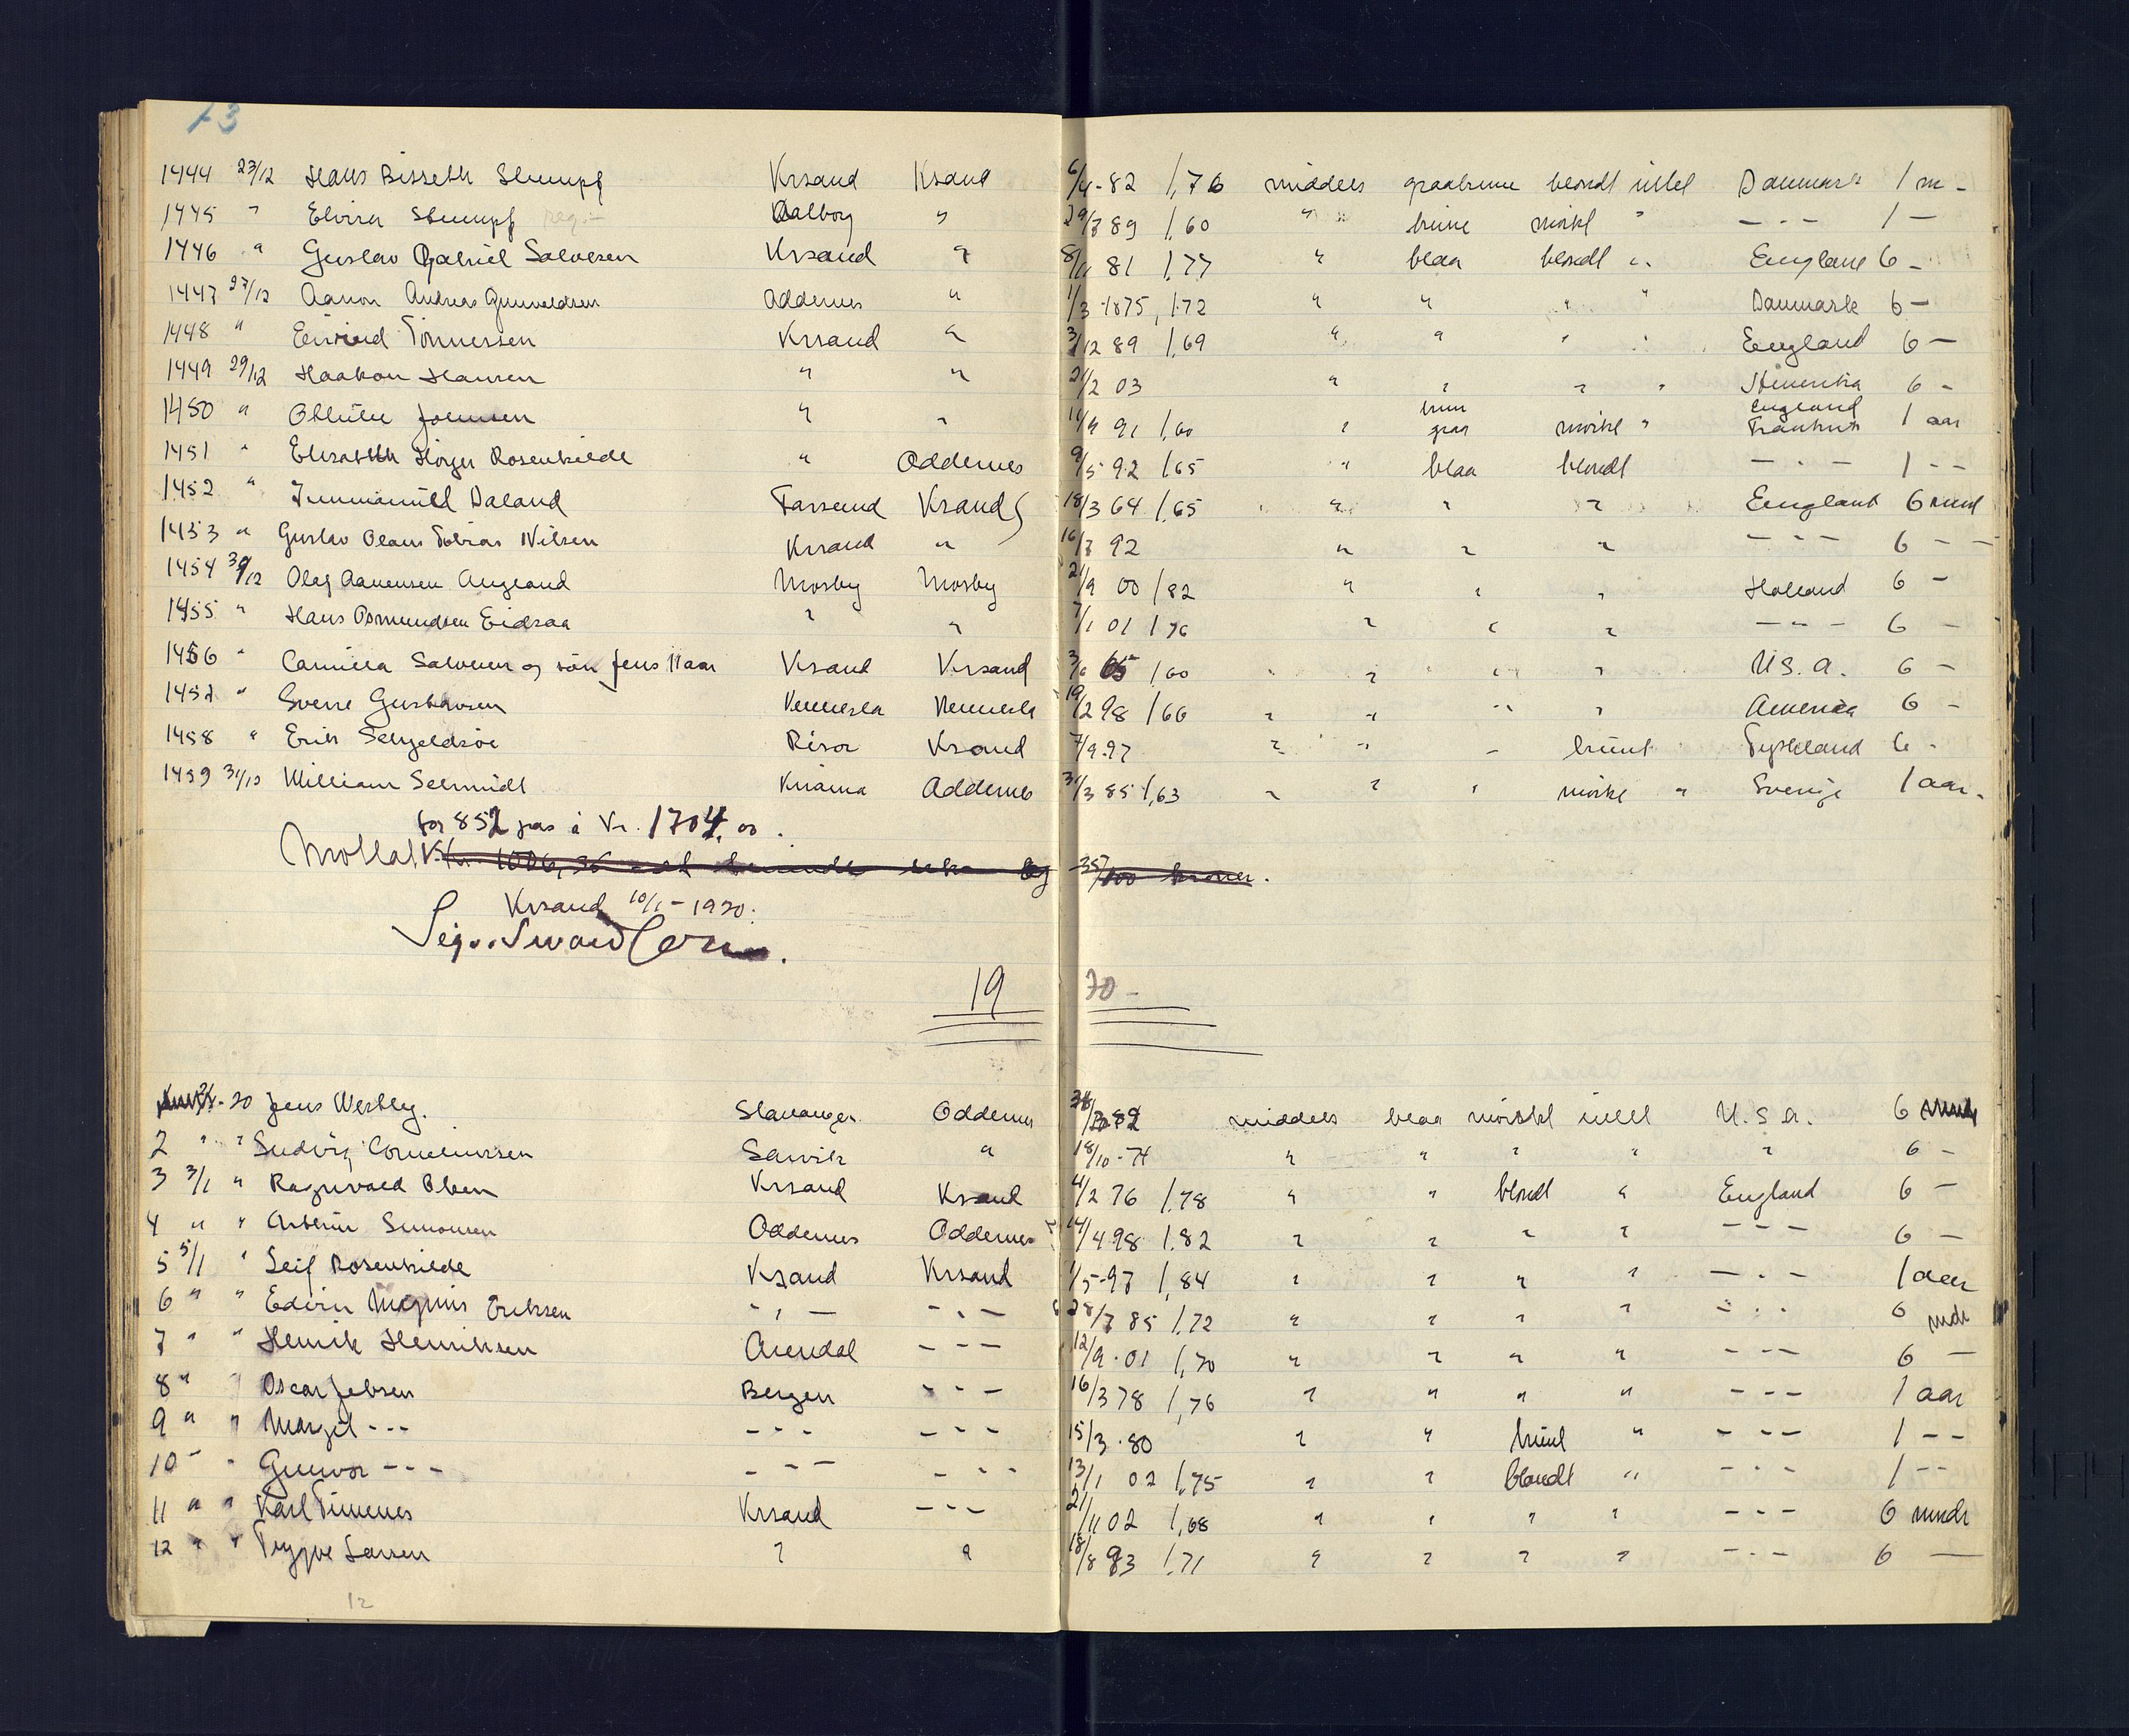 13
1444 23/12 Hans Bisseth Stumpf Krsand Krsand 6/4-82 1,76 middels graabrune blondt intet Danmark 1 m -
1445 " Elvira Stumpf Aalborg " 29/7 89 1,60 " brune mørkt " - - - 1 -
1446 " Gustav Gabriel Salvesen Krsand " 8/11 81 1,77 " blaa blondt " England 6 -
1447 27/12 Aanon Andreas Gunvaldsen Oddernes " 1/3 1875, 1.72 " " " " Danmark 6 -
1448 " Eivind Tönnessen Krsand " 3/12 89 1,69 " " " England 6 -
1449 29/12 Haakon Hansen " " 2/2 03 " " " " 6 -
1450 " Johnsen " " 11/9 91 1,60 " brun graa mørkt " England Frankrik 1 aar
1451 " Elisabeth Rosenkilde " Oddernes 9/5 92 1,65 " blaa blondt - - - 1 - -
1452 " Daland Farsund Krsand 18/3 64 1,65 " " " England 6 mnd
1453 " Gustav Olaus Tobias Nilsen Krsand " 16/7 92 " " " - - - 6 - -
1454 30/12 Olaf Aanensen Augland Mosby Mosby 2/9 00 1,82 " " " Holland 6 -
1455 " Hans Osmundsen Eidsaa " " 7/1 01 1,76 " " " - - - 6 -
1456 " Camilla Salvesen og sön Jens 11 aar Krsand Krsand 3/6 65 1,60 " " " U.S.A. 6 -
1457 " Sverre Gustavsen Vennesla Vennesla 19/2 98 1,66 " " " " America 6 -
1458 " Erik Risør Krsand 7/9-97 " " - brunt Tyskland 6 -
1459 31/12 William Schmidt Oddernes 31/3 85 1,63 " " " mørkt " Sverige 1 aar.
for 852 pas à Kr. 1704,00.
Mottat Kr.
Krsand 10/1 - 1920.
19 20 -
2/1-20 Jens Westby. Stavanger Oddernes middels blaa mørkt intet U.S.A. 6
2 " " Ludvig Corneliussen Sarvik " 18/10-74 " " " " " 6 -
3 3/1 " Ragnvald Olsen Krsand Krsand 4/2 76 1,78 " " blondt " England 6 -
4 " " Simonsen Oddernes Oddernes 14/4 98 1.82 " " " " - - - 6 -
5 5/1 " Leif Rosenkilde Krsand Krsand 1/5-97 1,84 " " " " - - - 1 aar
6 " " Edvin Magnus Eriksen - " - - " - 28/7 85 1.72 " " " " - - - 6 mdr
7 " " Henrik Henriksen Arendal - - - 12/9-01 1,70 " " " " - - - 6 -
8 " " Oscar Jebsen Bergen - - - 16/3 78 1,76 " " " " - - - 1 aar
9 " " Margit - - - - - - - - - 15/3-80 " " brünt " - - - 1 - -
10 - " Gunvor - - - - - - - - - 13/1 02 1,75 " " blondt " - - - 1 - -
11 " " Karl Timenes Krsand - - - 21/11 02 1,68 " " " " - - - 6 mndr
12 " " Trygve Larsen " " 18/8 93 1.71 " " " " - - - 6 -
12